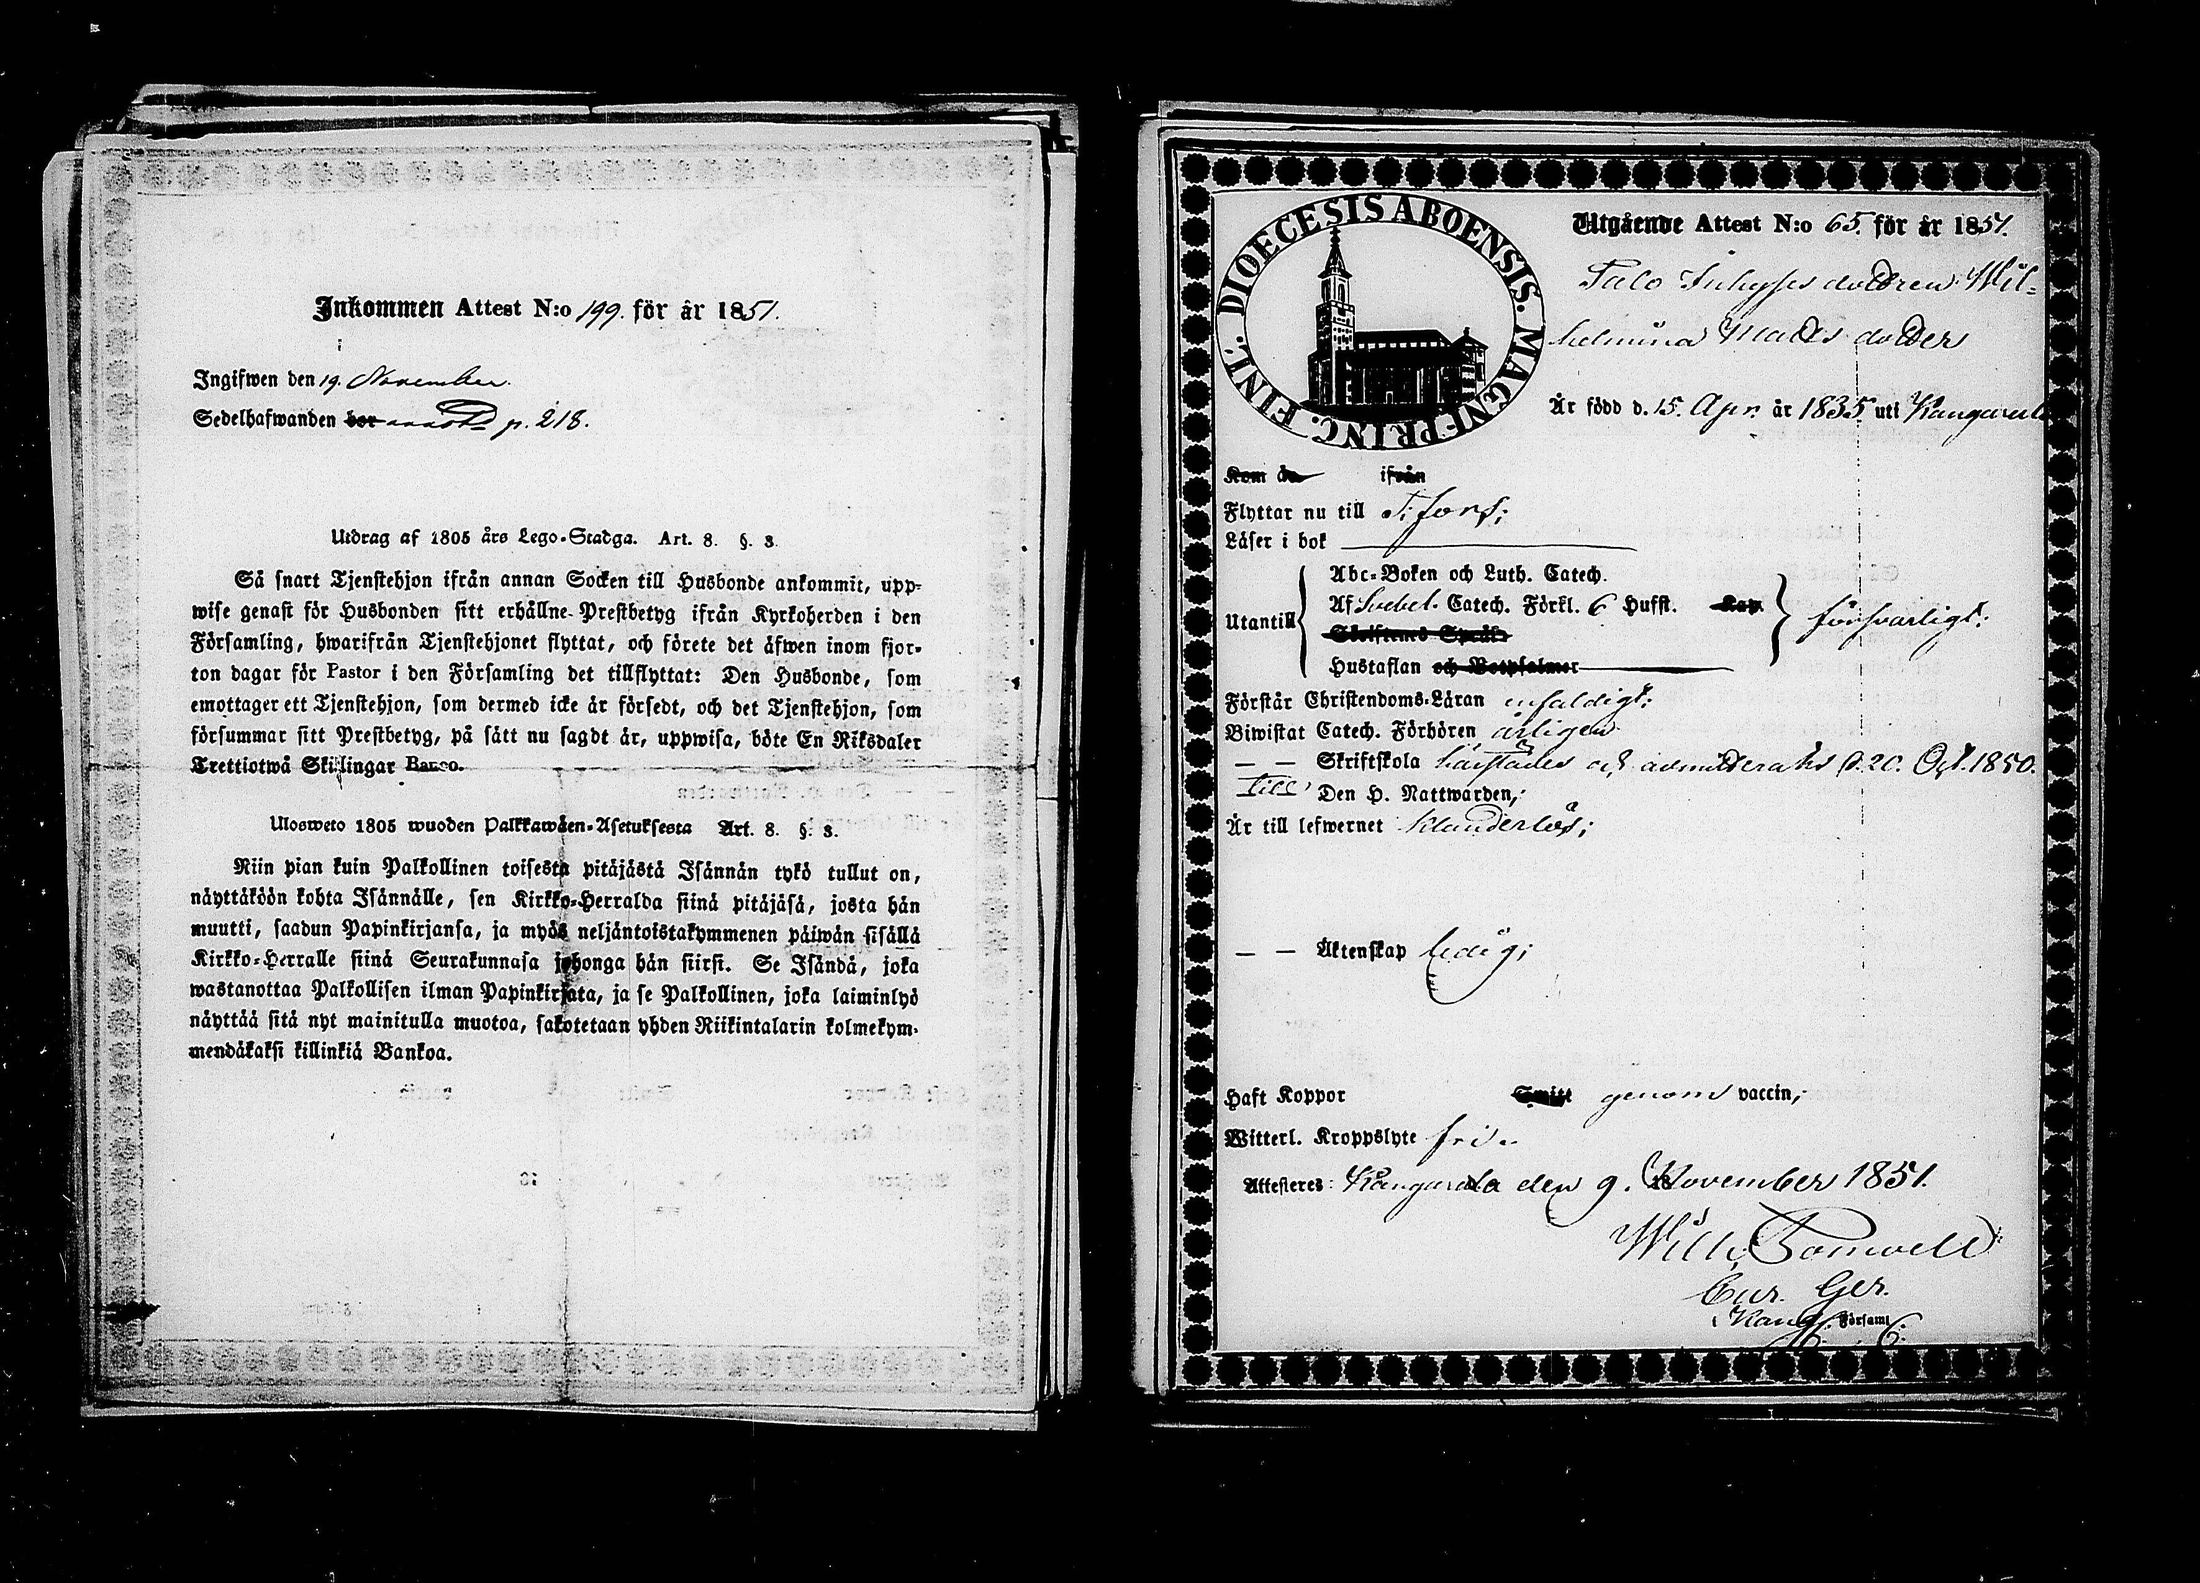 Inkommen Attest N:o 199. för år 1851.
Ingifwen den 19. November.
Sedelhafwanden bor p. 218.
Utdrag af 1805 års Lego-Stadga. Art. 8. §. 3.
Så snart Tjenstehjon ifrån annan Socken till Husbonde ankommit, upp-
wise genast för Husbonden sitt erhållne Prestbetyg ifrån Kyrkoherden i den
Församling, hwarifrån Tjenstehjonet flyttat, och förete det äfwen inom fjor-
ton dagar för Pastor i den Församling det tillflyttat: Den Husbonde, som
emottager ett Tjenstehjon, som dermed icke är försedt, och det Tjenstehjon, som
försummar sitt Prestbetyg, på sätt nu sagdt är, uppwisa, böte En Riksdaler
Trettiotwå Skillingar Banco.
Ulosweto 1805 wuoden Palkkawäen-Asetuksesta Art. 8. §. 3.
Niin pian kuin Palkollinen toisesta pitäjästä Isännän tykö tullut on,
näyttäköön kohta Isännälle, sen Kirkko-Herralda siinä pitäjäsä, josta hän
muutti, saadun Papinkirjansa, ja myös neljäntoistakymmenen päiwän sisällä
Kirkko-Herralle siinä Seurakunnasa johonga hän siirsi. Se Isändä, joka
wastanottaa Palkollisen ilman Papinkirjata, ja se Palkollinen, joka laiminlyö
näyttää sitä nyt mainitulla muotoa, sakotetaan yhden Riikintalarin kolmekym-
mendäkaksi killinkiä Bankoa.
DIOECESIS ABOENSIS. MAGNI PRINC. FINL.
Utgående Attest N:o 65. för år 1851.
dottren Wil-
helmina Matts dotter
Är född d. 15. Apr. år 1835 uti Kangasala
Kom år ifrån
Flyttar nu till T:fors;
Läser i bok
Utantill
Abc-Boken och Luth. Catech.
Af Svebel. Catech. Förkl. 6 Husst. Kap.
Skriftenes Språk
Hustaflan och Botpsalmer
försvarligt;
Förstår Christendoms-Läran enfaldigt;
Biwistat Catech. Förhören årligen
— — Skriftskola härstädes och admitterats d. 20. Oct. 1850.
till Den H. Nattwarden;
Är till lefwernet klanderlös;
— — Äktenskap ledig;
Haft Koppor Smitt genom vaccin;
Witterl. Kroppslyte fri.
Attesteres: Kangasala den 9. November 1851.
Wilh.
Cur. Ger.
Kang. Församl.